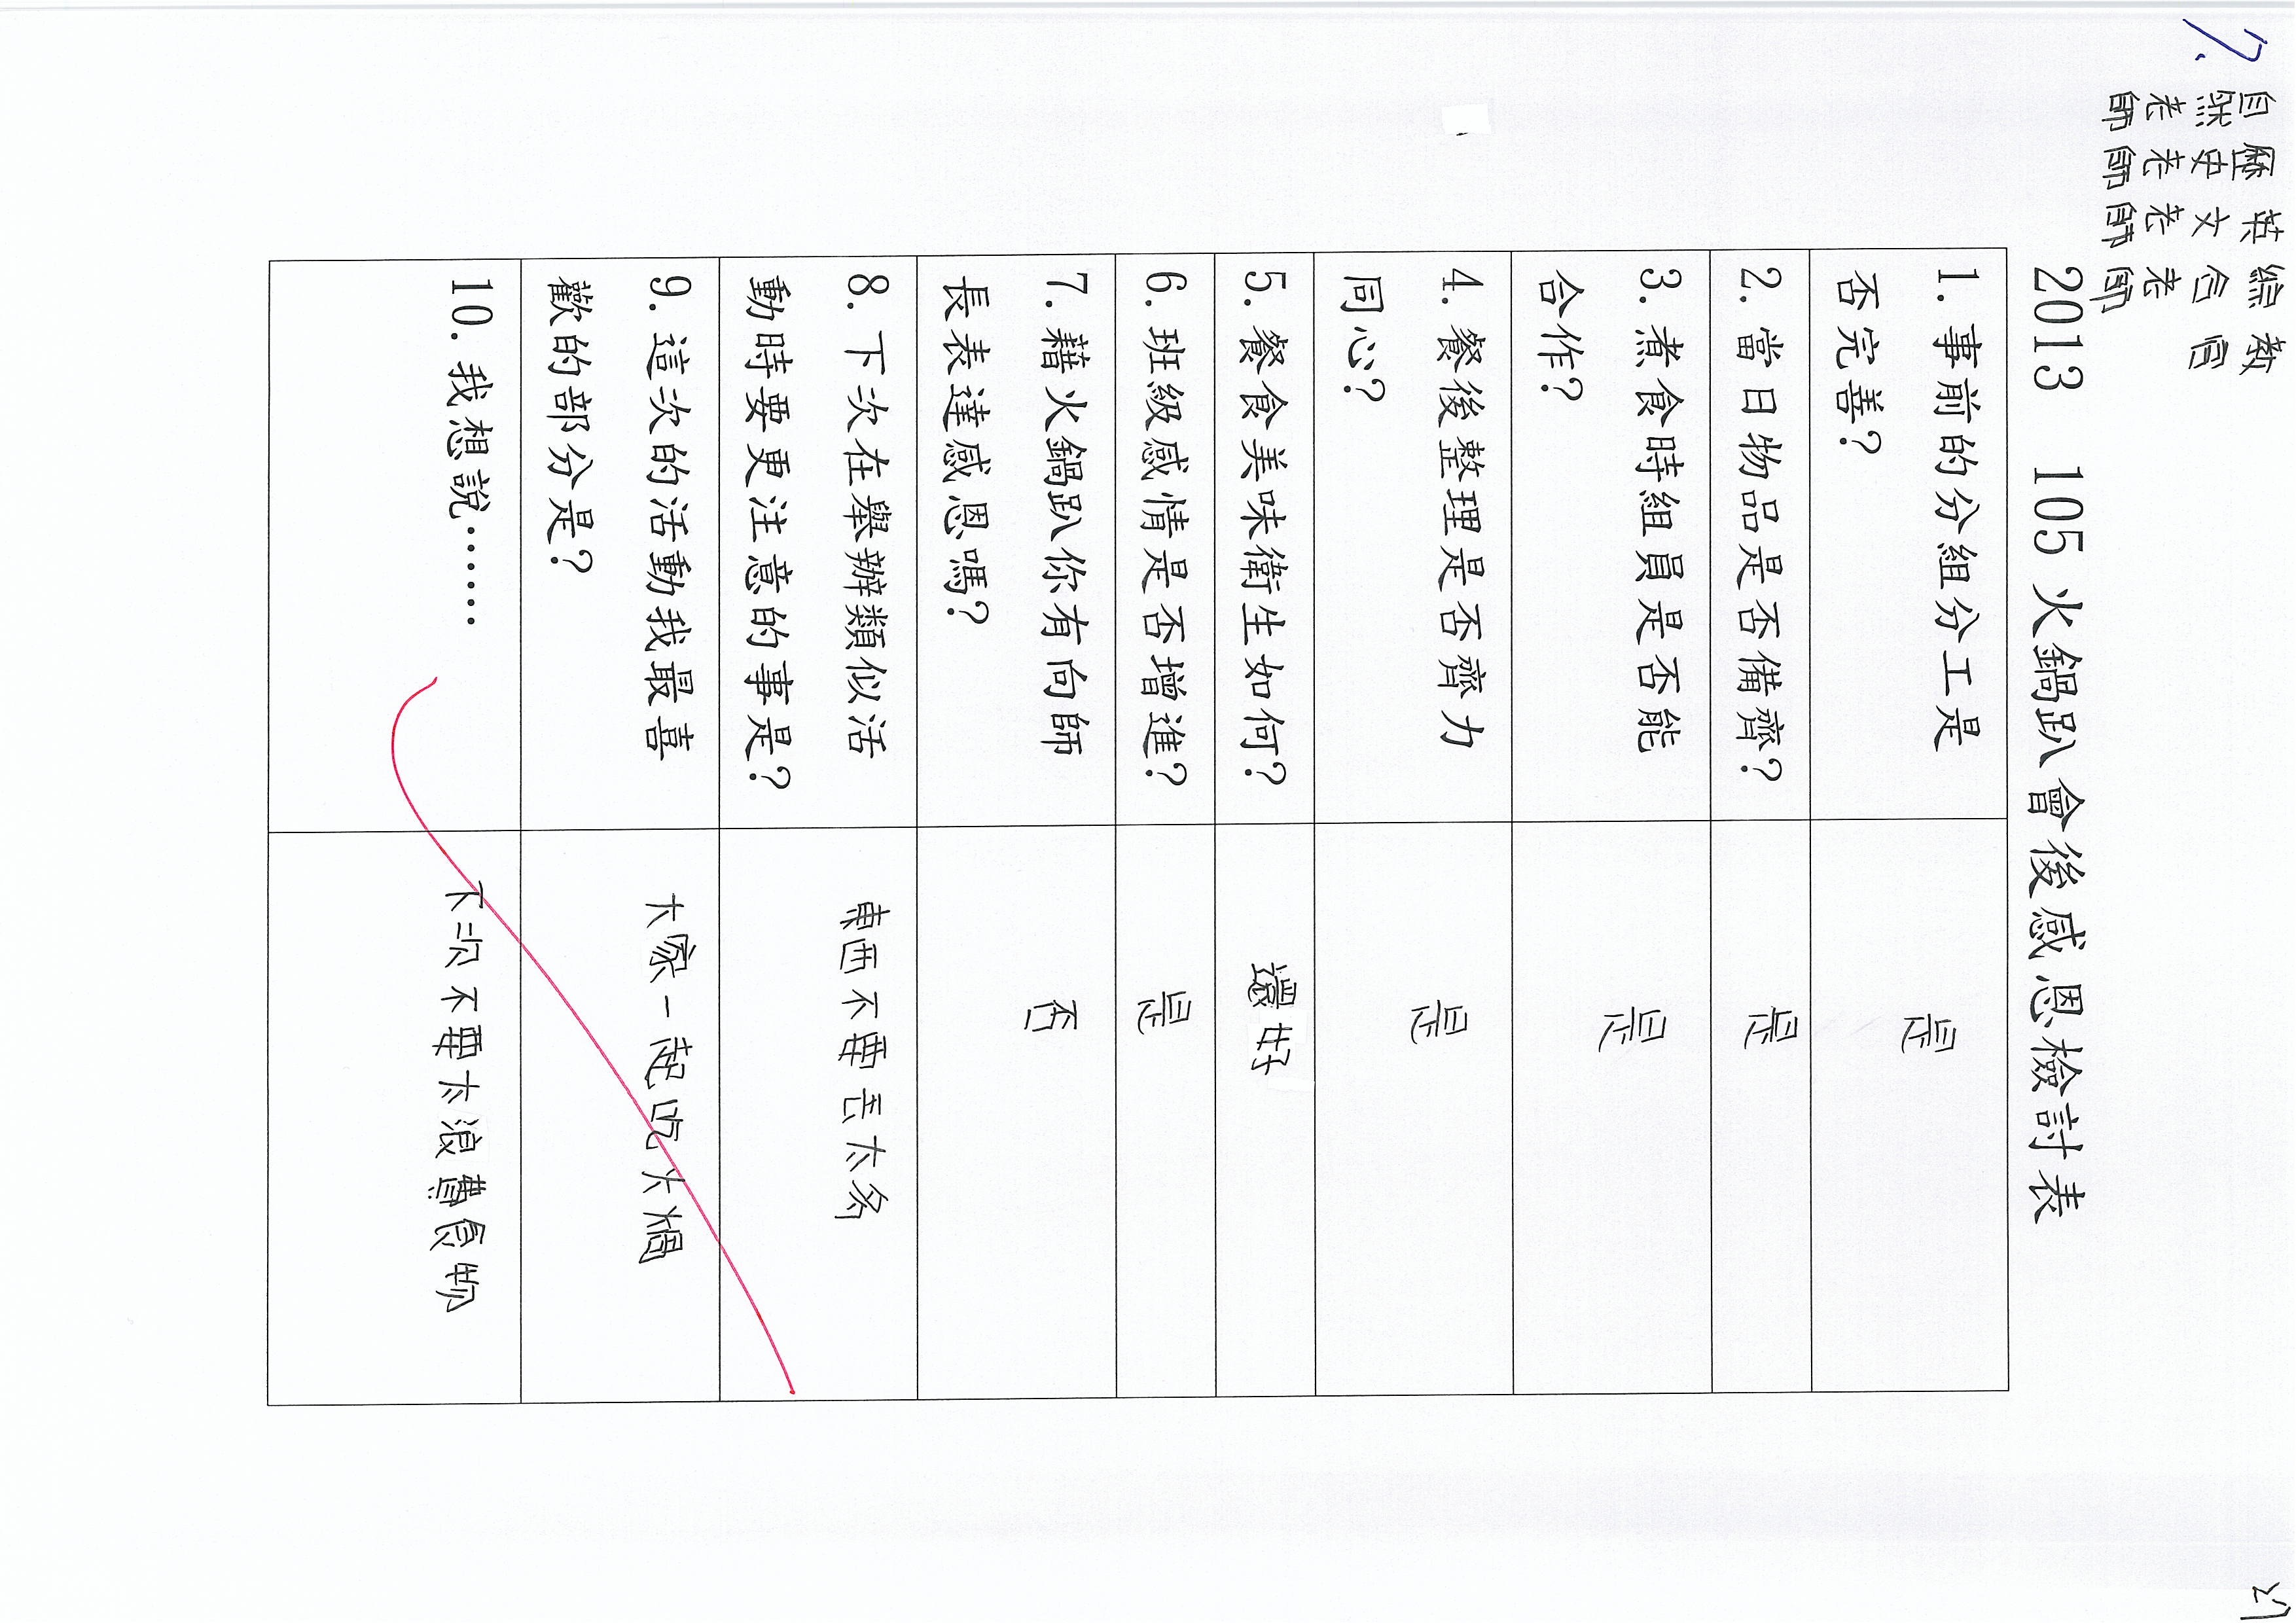 7.
自然老師
歷史老師
英文老師
綜合老師
教官
2013 105火鍋趴會後感恩檢討表
1. 事前的分組分工是
否完善?
是
2. 當日物品是否備齊?
是
3. 煮食時組員是否能
合作?
是
4. 餐後整理是否齊力
同心?
是
5. 餐食美味衛生如何?
還好
6. 班級感情是否增進?
是
7. 藉火鍋趴你有向師
長表達感恩嗎?
否
8. 下次在舉辦類似活
動時要更注意的事是?
東西不要丟太多
9. 這次的活動我最喜
歡的部分是?
大家一起吃火鍋
10. 我想說……
下次不要太浪費食物